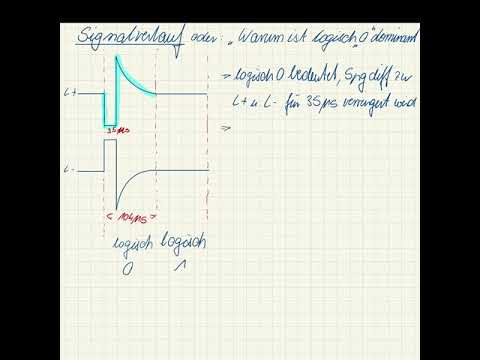 Signalverlauf oder: „Warum ist logisch „0" dominant
→ logisch 0 bedeutet, Spg diff zw
L+ u L- für 35 µs verringert wird
→
L+
35 µs
L-
< 104 µs >
logisch logisch
0 1